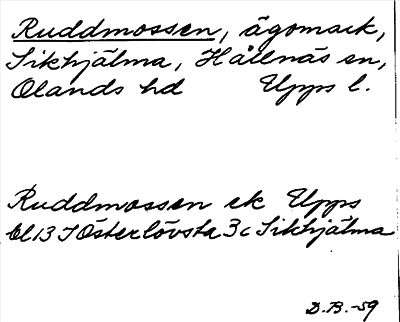 Ruddmossen, ägomark,
Sikhjälma, Hållnäs sn,
Olands hd Upps l.
Ruddmossen ek Upps
bl 13 I Österlövsta 3c Sikhjälma
D.B.-59